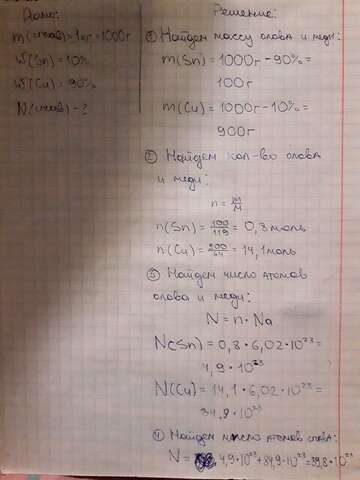 Дано:
m(сплав) = 1кг = 1000г
W(Sn) = 10%
W(Cu) = 90%
N(сплав) - ?
Решение:
① Найдем массу олова и меди:
m(Sn) = 1000г - 90% =
100г
m(Cu) = 1000г - 10% =
900г
② Найдем кол-во олова
и меди:
n = m/M
n(Sn) = 100/119 = 0,8 моль
n(Cu) = 900/64 = 14,1 моль
③ Найдем число атомов
олова и меди:
N = n · Na
N(Sn) = 0,8 · 6,02 · 10²³ =
4,9 · 10²³
N(Cu) = 14,1 · 6,02 · 10²³ =
84,9 · 10²³
④ Найдем число атомов сплава:
N = 4,9 · 10²³ + 84,9 · 10²³ = 89,8 · 10²³